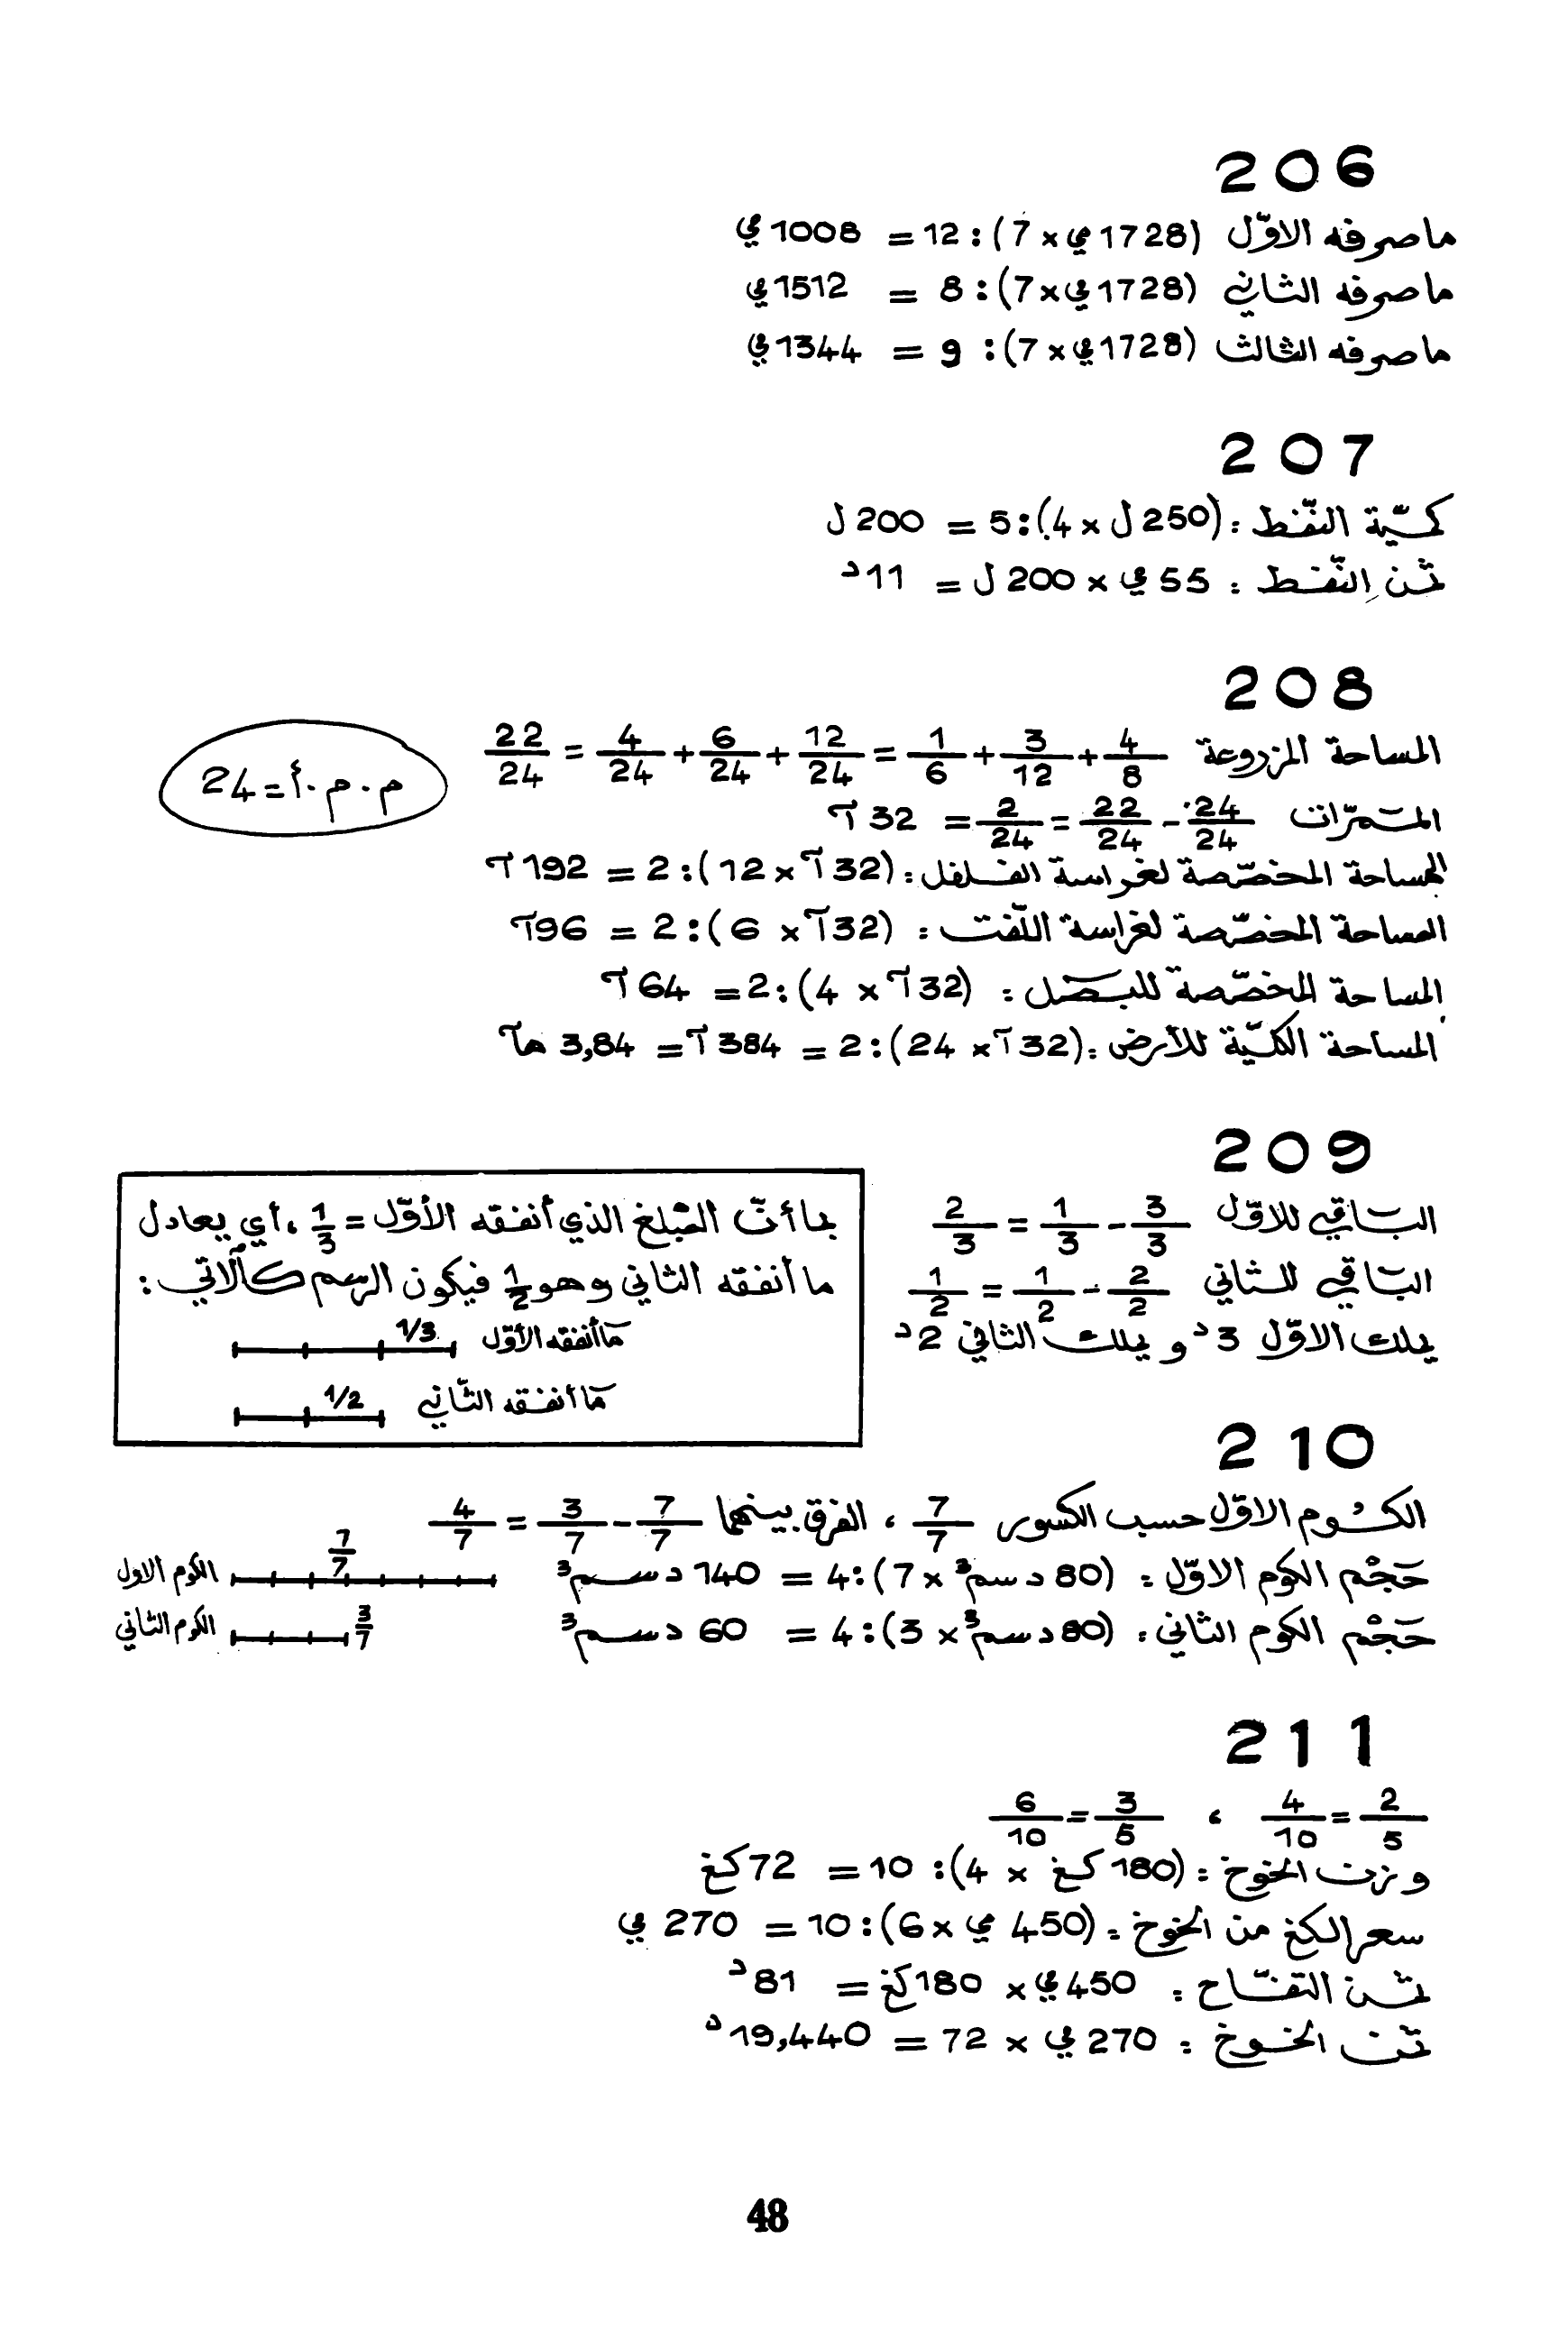 206
ما صرفه الاوّل (1728 مي × 7) : 12 = 1008 مي
ما صرفه الثاني (1728 مي × 7) : 8 = 1512 مي
ما صرفه الثالث (1728 مي × 7) : 9 = 1344 مي
207
كميّة النّفط : (250 ل × 4) : 5 = 200 ل
ثمن النّفط : 55 مي × 200 ل = 11 د
208
المساحة المزروعة 4/8 + 3/12 + 1/6 = 12/24 + 6/24 + 4/24 = 22/24
م . م . أ = 24
الممرّات 24/24 - 22/24 = 2/24 = 32 آ
المساحة المخصّصة لغراسة الفلفل : (32 آ × 12) : 2 = 192 آ
المساحة المخصّصة لغراسة اللّفت : (32 آ × 6) : 2 = 96 آ
المساحة المخصّصة للبصل : (32 آ × 4) : 2 = 64 آ
المساحة الكليّة للأرض : (32 آ × 24) : 2 = 384 آ = 3,84 هآ
209
الباقي للاوّل 3/3 - 1/3 = 2/3
الباقي للثاني 2/2 - 1/2 = 1/2
يملك الاوّل 3 د و يملك الثاني 2 د
بما أنّ المبلغ الذي أنفقه الأوّل = 1/3 ، أي يعادل
ما أنفقه الثاني وهو 1/2 فيكون الرسم كالآتي :
ما أنفقه الأوّل 1/3
ما أنفقه الثّاني 1/2
210
الكوم الاوّل حسب الكسور 7/7 ، الفرق بينهما 7/7 - 3/7 = 4/7
حَجْم الكوم الاوّل : (80 دسم³ × 7) : 4 = 140 دسم³
الكوم الاول 7/7
حَجْم الكوم الثاني : (80 دسم³ × 3) : 4 = 60 دسم³
الكوم الثاني 3/7
211
2/5 = 4/10 ، 3/5 = 6/10
وزن الخوخ : (180 كغ × 4) : 10 = 72 كغ
سعر الكغ من الخوخ : (450 مي × 6) : 10 = 270 مي
ثمن التفّاح : 450 مي × 180 كغ = 81 د
ثمن الخوخ : 270 مي × 72 = 19,440 د
48